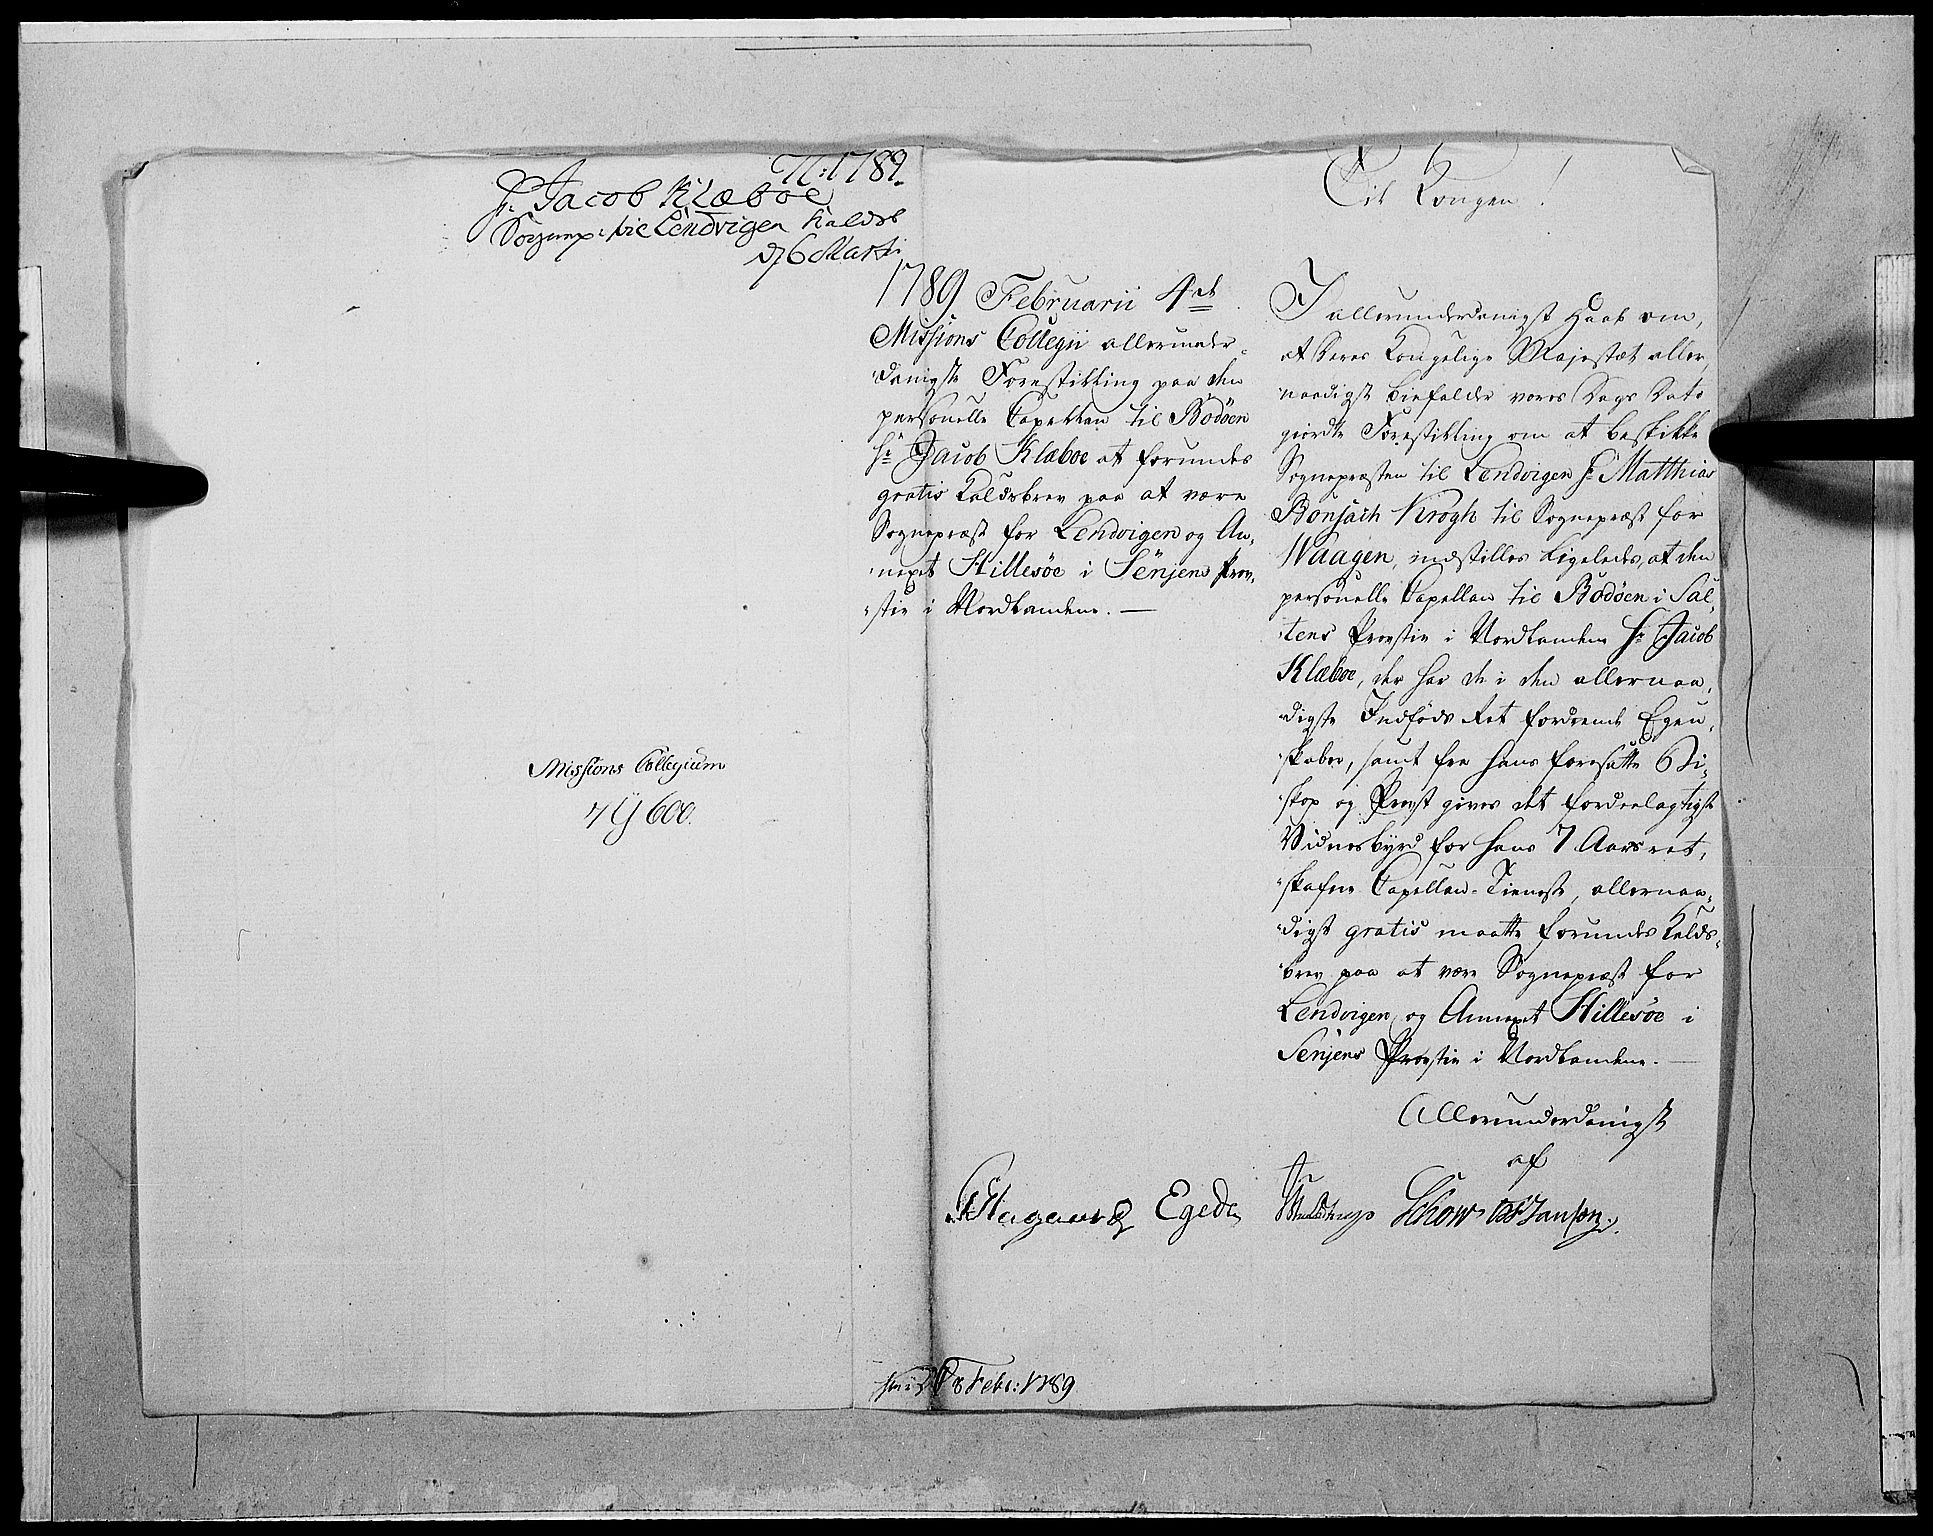 N: 1782.
Hr Jacob Klæboe
Sognep: til Lendvigen Kaldsb
d 6 Marti
Missions Collegium
600.
1789 Februarii 4de
Missions Collegii allerunder-
danigste Forestilling paa den
personelle Capellan til Bodöen
Hr Jacob Klæboe at forundes
gratis Kaldsbrev paa at være
Sognepræst for Lendvigen og An-
nexet Hillesöe i Senjens Prov-
stie i Nordlandene. —
Til Kongen!
I allerunderdanigst Haab om,
at Deres Kongelige Majestæt aller-
naadigst bifalder vores Dags Dato
giordte Forestilling om at beskikke
Sognepræsten til Lendvigen Hr Matthias
Bonsach Krogh til Sognepræst for
Waagen, indstilles ligeledes, at den
personelle Capellan til Bodöen i Sal-
tens Provstie i Nordlandene Hr Jacob
Klæboe, der har de i den allernaa-
digste Indföds Ret fordrende Egen-
skaber, samt fra hans foresatte Bi-
skop og Provst gives det fordeelagtigste
Vidnesbyrd for hans 7 Aars ret-
skafne Capellan-Tieneste, allernaa-
digst gratis maatte forundes Kalds-
brev paa at være Sognepræst for
Lendvigen og Annexet Hillesöe i
Senjens Provstie i Nordlandene. —
Allerunderdanigst
af
Egede Schow Janson.
18 Febr: 1789